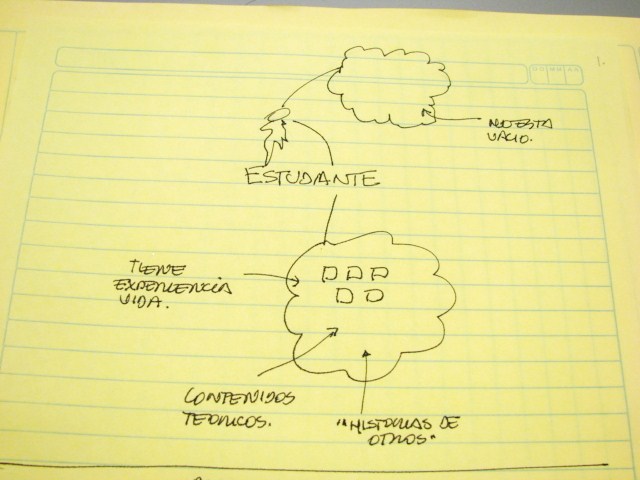 1.
NO ESTA
VACIO.
ESTUDIANTE
TIENE
EXPERIENCIA
VIDA.
CONTENIDOS
TEORICOS.
"HISTORIAS DE
OTROS"